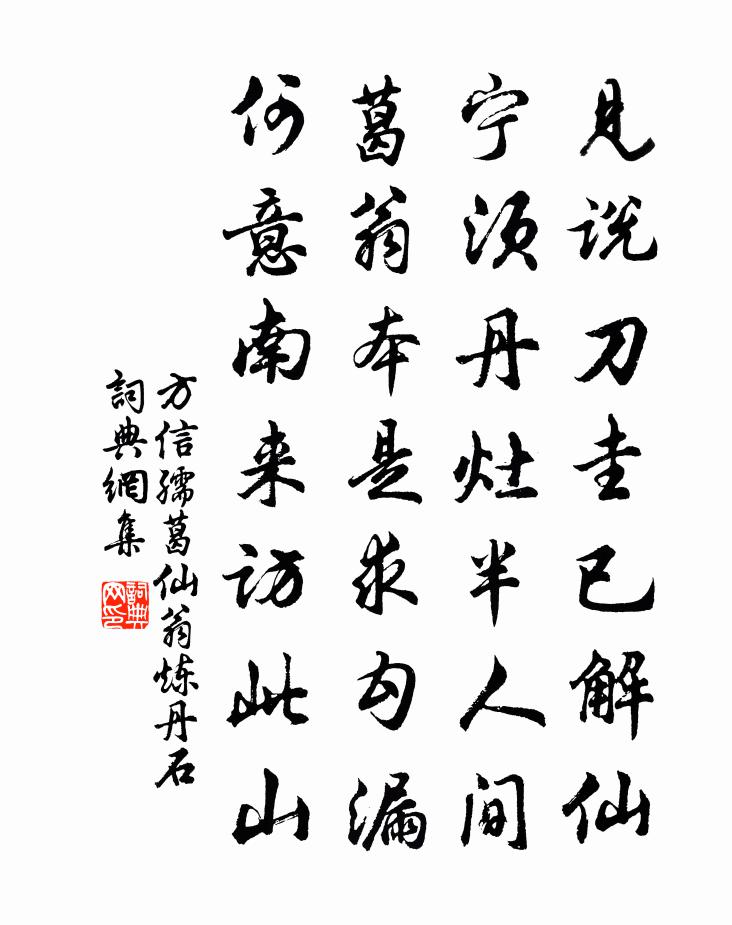 见说刀圭已解仙
宁须丹灶半人间
葛翁本是求勾漏
何意南来访此山
方信孺葛仙翁炼丹石
詞典網集
詞典
网印